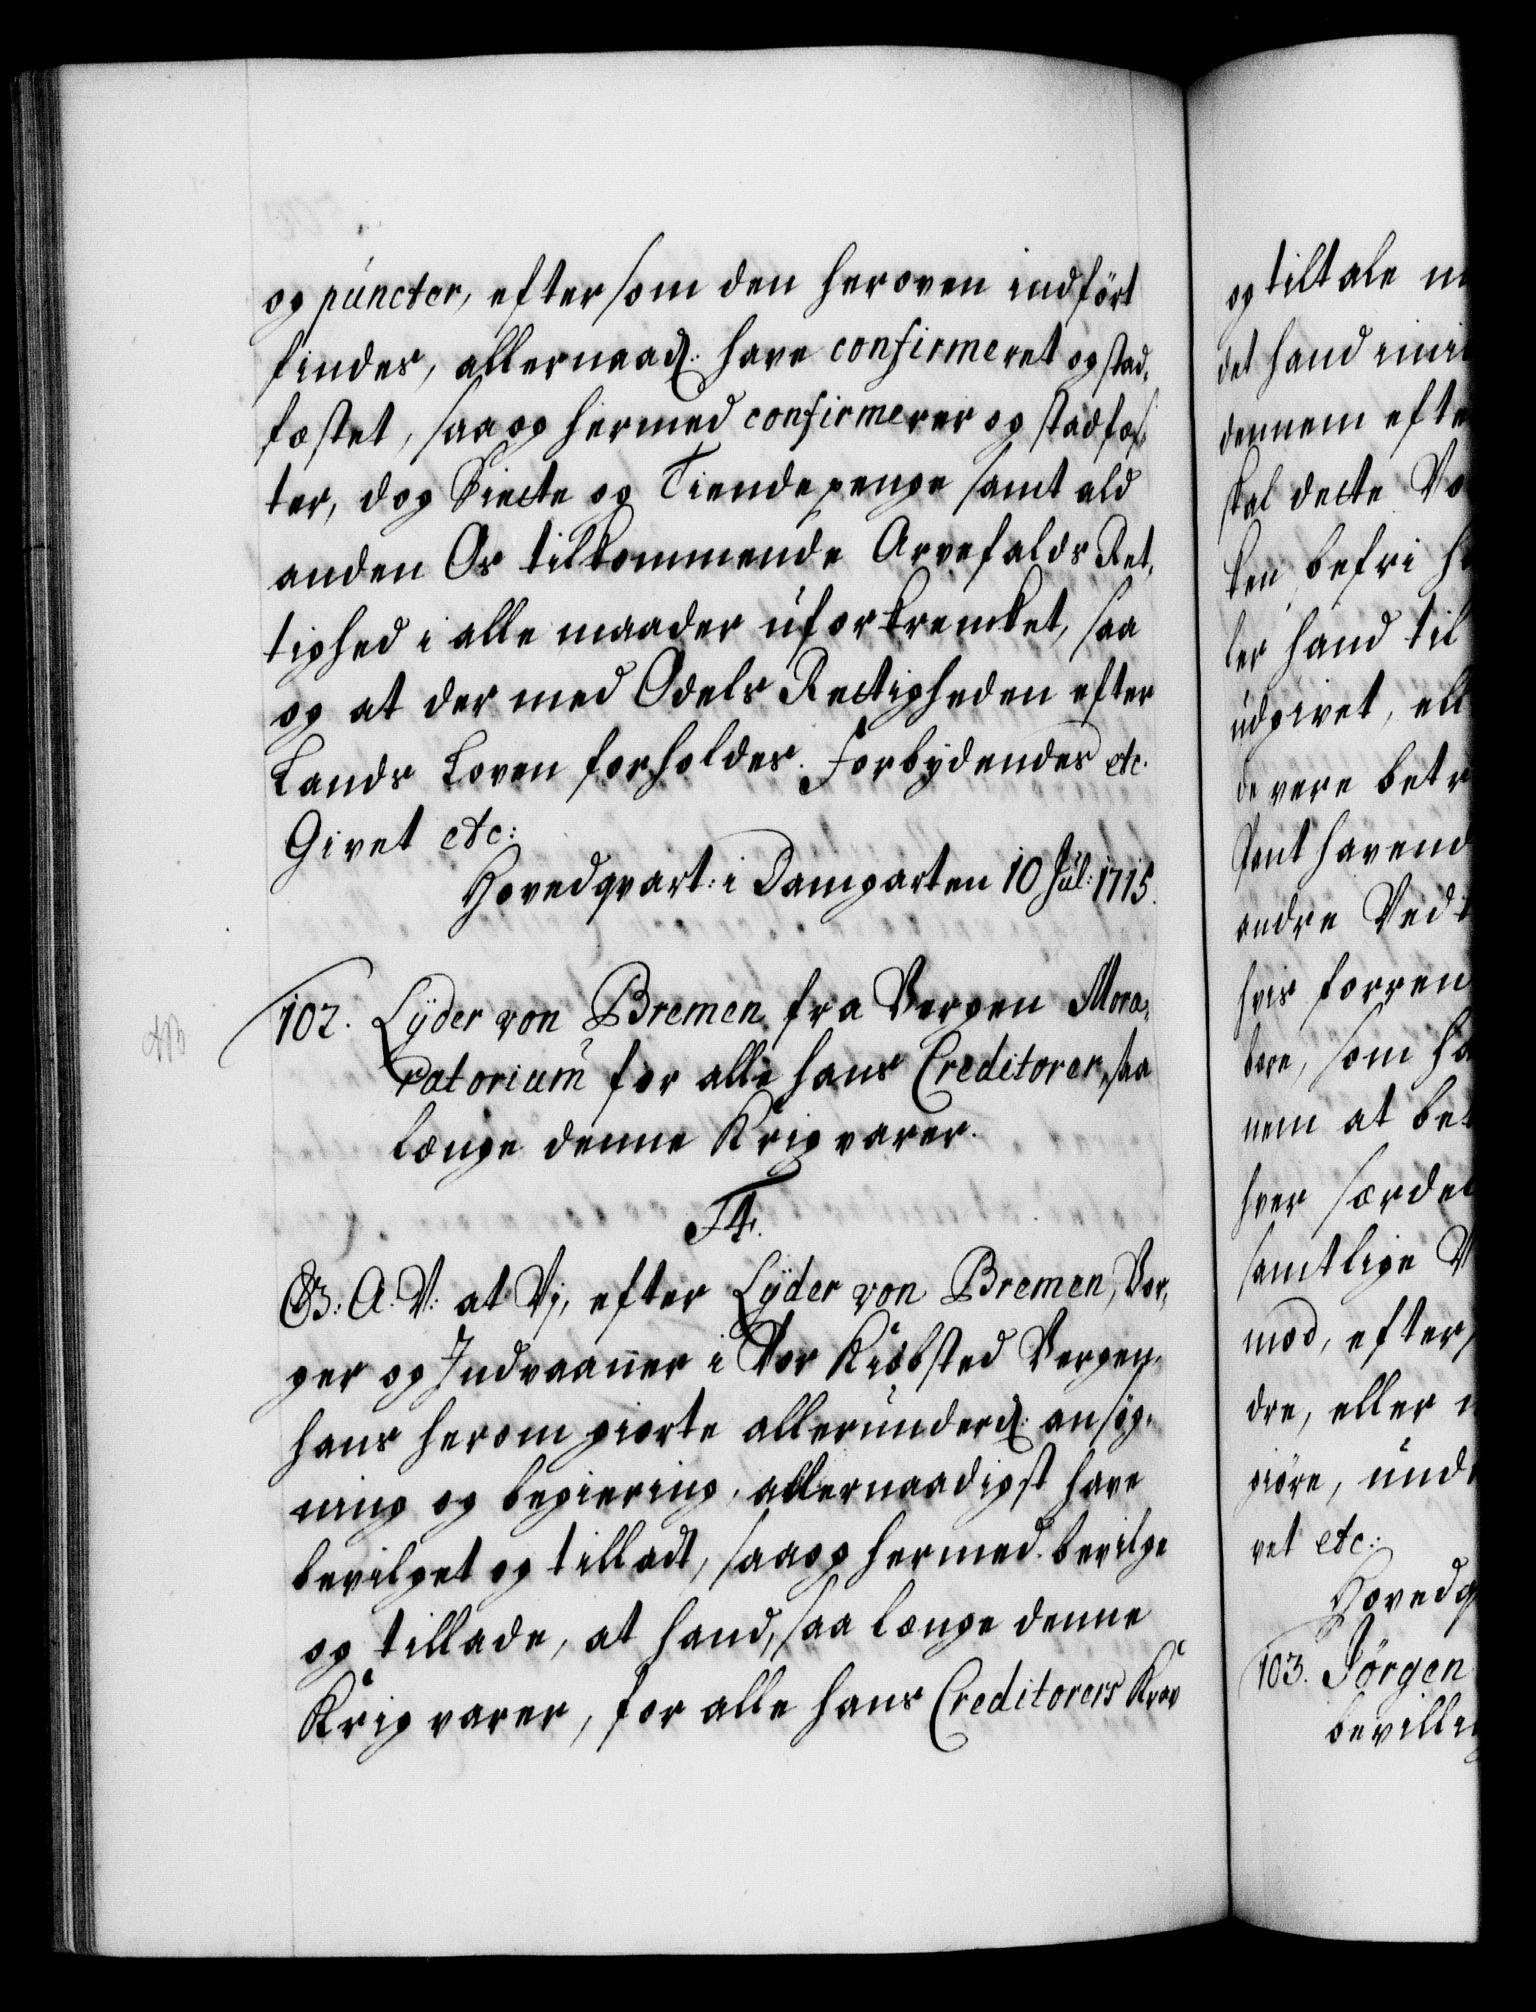 og puncter, eftersom den heroven indført
findes, allernaad: have confirmeret og stad,
fæstet, saa og hermed confirmerer og stadfæs,
ter, dog Siette og Tiendepenge samt ald
anden Os tilkommende Arvefalds Ret,
tighed i alle maader uforkrencket, saa
og at der med Odels Rettigheden efter
Lands Loven forholdes. Forbydendes etc.
Givet etc:
Hovedqvart: i Damgarten 10 Jul: 1715.
102. Lÿder von Bremen fra Bergen Mora,
ratorium for alle hans Creditorer, saa
længe denne Krig varer.
F4.
G: A. V: at Vj, efter Lÿder von Bremen, Bor,
ger og Indvaaner i Vor Kiøbsted Bergen,
hans herom giorte allerunderd: ansøg,
ning og begiering, allernaadigst have
bevilget og tilladt, saa og hermed bevilge
og tillade, at hand, saa længe denne
Krig varer, for alle hans Creditorers Krav
og tiltale
det hand
dennem efte
skal dette Vo
ken befri
ler hand til
udgivet, ell
de vere betr
Pant havend
andre Ved
hvis forren
bere, som ha
nem at bet
hver særdel
samtlige V
mod, efter
dre, eller
giøre, und
vet etc:
Hovedq
103. Jørgen
bevilli